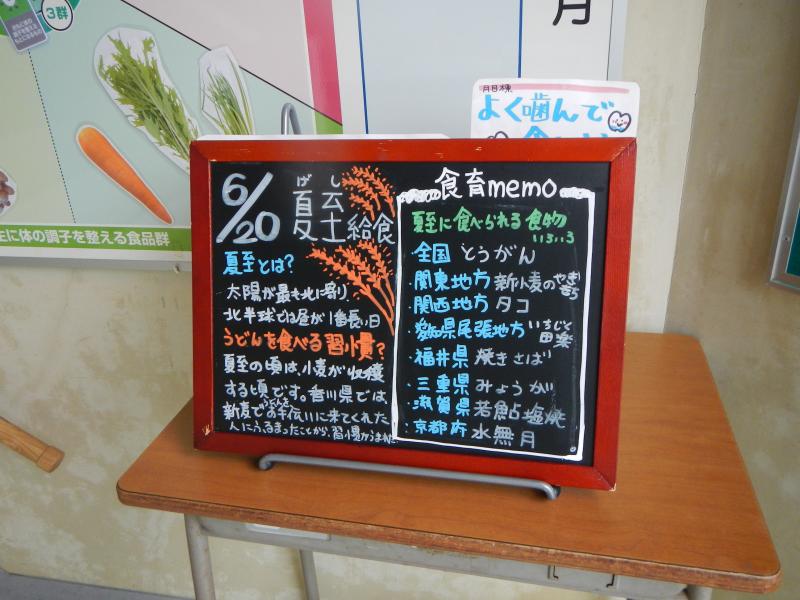 3群
月
月目標
よく噛んで
生に体の調子を整える食品群
6/20 夏至給食
げ し
夏至とは?
太陽が最も北に寄り
北半球では昼が1番長い日
うどんを食べる習慣?
夏至の頃は、小麦が収穫
する頃です。香川県では、
新麦でうどんをお手伝いに来てくれた
人にふるまったことから、習慣がうまれた
食育memo
夏至に食べられる食物
いろいろ
・全国 とうがん
・関東地方 新小麦のやきもち
・関西地方 タコ
・愛知県尾張地方 いちじく田楽
・福井県 焼きさば
・三重県 みょうが
・滋賀県 若鮎塩焼
・京都府 水無月